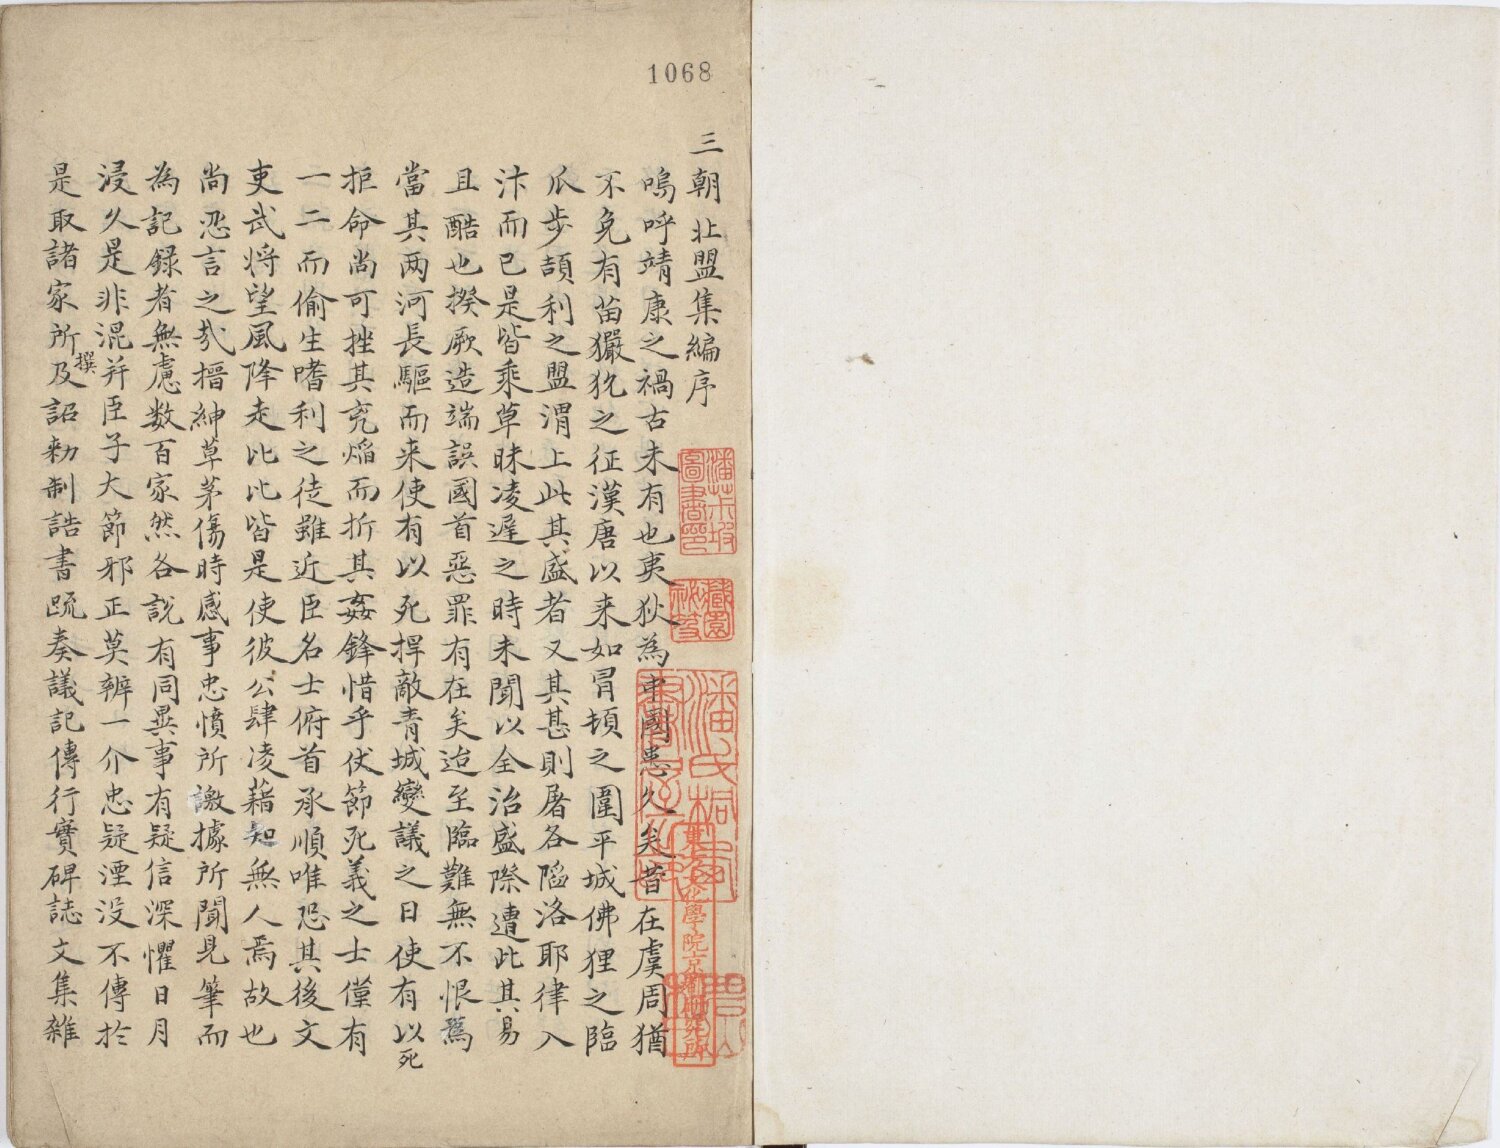 1068
三朝北盟集編序
嗚呼靖康之禍古未有也夷狄為中國患久矣昔在虞周猶
不免有苗玁狁之征漢唐以来如冐頓之圍平城佛狸之臨
瓜步頡利之盟渭上此其盛者又其甚則屠各陷洛耶律入
汴而已是皆乘草昧凌遲之時未聞以全治盛際遭此其易
且酷也揆厥造端誤國首惡罪有在矣迨至臨難無不恨焉
當其两河長驅而来使有以死捍敵青城變議之日使有以死
拒命尚可挫其兇焰而折其姦鋒惜乎伏節死義之士僅有
一二而偷生嗜利之徒雖近臣名士俯首承順唯恐其後文
吏武将望風降走比比皆是使彼公肆凌藉知無人焉故也
尚忍言之㢤搢紳草茅傷時感事忠憤所激據所聞見筆而
為記録者無慮数百家然各說有同異事有疑信深懼日月
浸久是非混并臣子大節邪正莫辨一介忠疑湮没不傳於
是取諸家所撰及詔勅制誥書疏奏議記傳行實碑誌文集雜
潘茮坡圖書印
潘氏桐西書屋之印
東方文化學院京